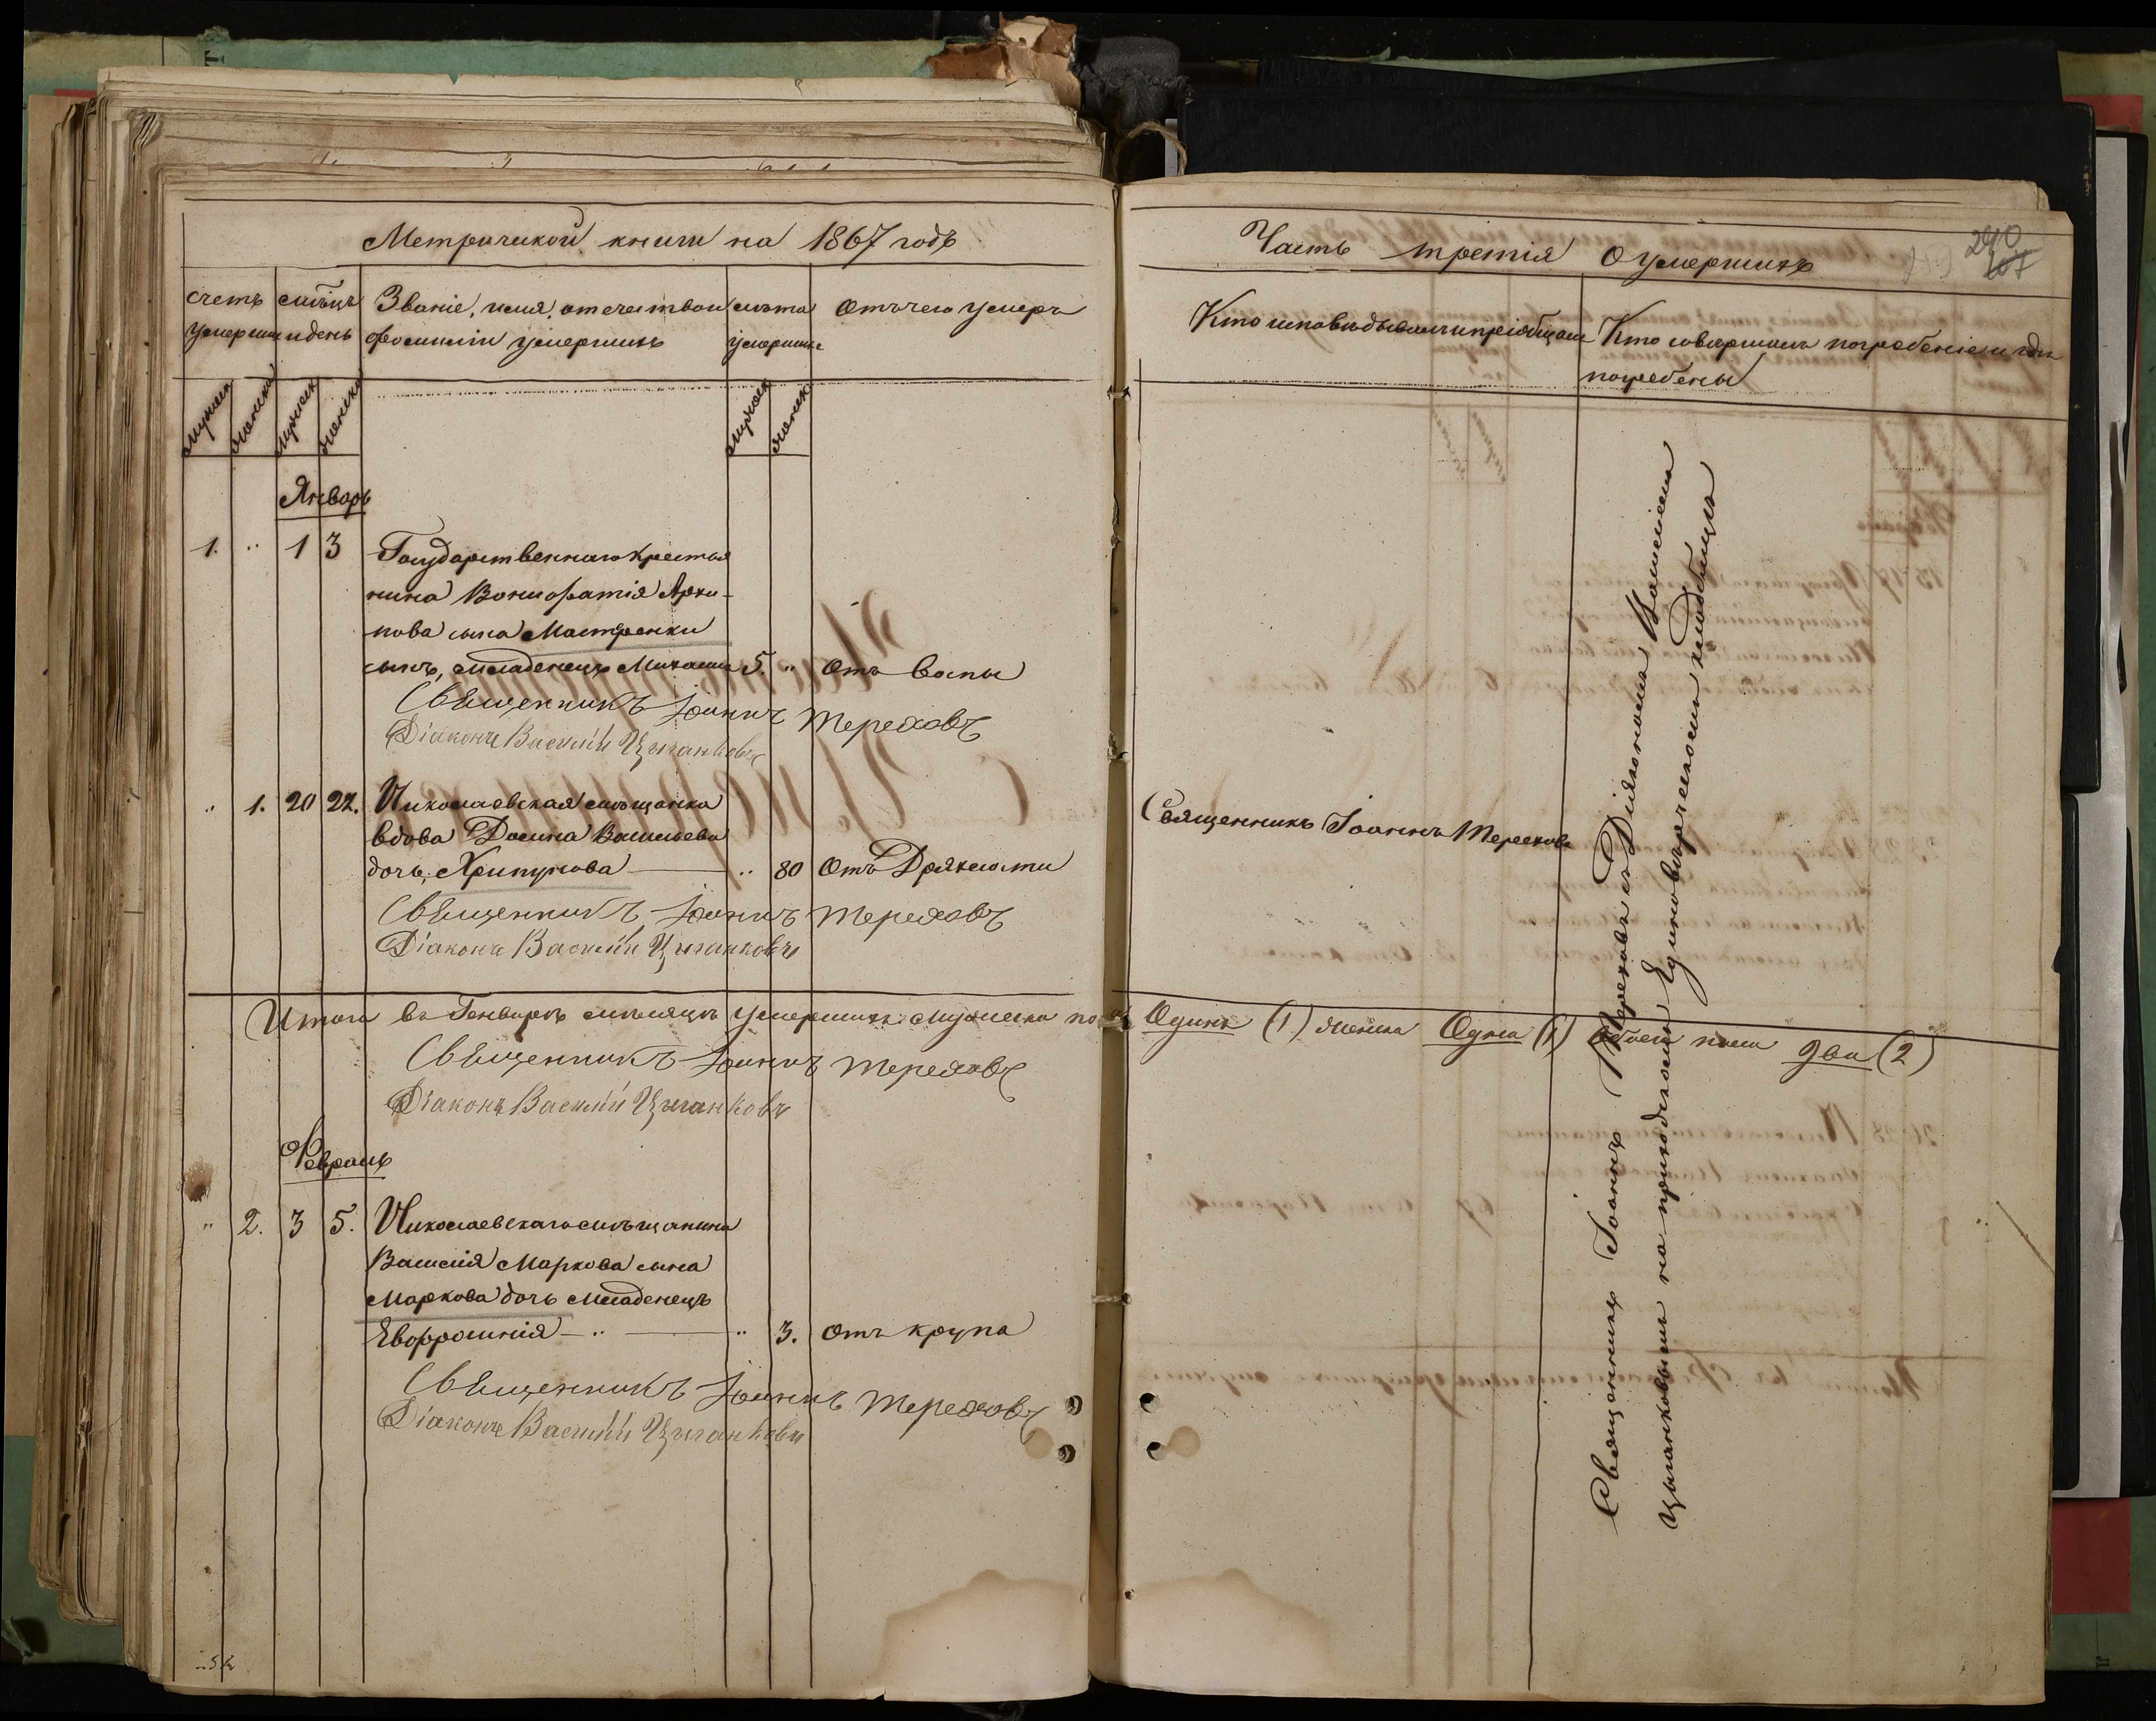 Метрической книги на 1867 годъ
счетъ умершихъ
мѣсяцъ и день
Званіе, имя, отечество и фамилія умершихъ
лѣта умершихъ
Отъ чего умеръ
мужеск
женски
мужеск
женски
мужеск
женск
Январь
1. .. 1 3 Государственнаго крестья
нина Вонифатія Архи-
пова сына Мастренки
сынъ, младенецъ Михаилъ 5. .. Отъ воспы
Священникъ Іоаннъ Тереховъ
Діаконъ Василій Цыганковъ
.. 1. 20 22. Николаевская мѣщанка
вдова Васильева
дочь, Хрипунова .. 80 Отъ Дряхлости
Священникъ Іоаннъ Тереховъ
Діаконъ Василій Цыганковъ
Итого въ Генварѣ мѣсяцѣ умершихъ мужеска
Священникъ Іоаннъ Тереховъ
Діаконъ Василій Цыганковъ
Февраль
.. 2. 3 5. Николаевскаго мѣщанина
Василія Маркова сына
Маркова дочь младенецъ
Евфросинія .. 3. Отъ крупа
Священникъ Іоаннъ Тереховъ
Діаконъ Василій Цыганковъ
Часть третія О умершихъ
240
107
Кто исповѣдывалъ и пріобщалъ
Кто совершалъ погребеніе и гдѣ
погребены
Священникъ Іоаннъ Тереховъ
Одинъ (1) женска Одна (1) обоего пола два (2)
Священникъ Іоаннъ Тереховъ съ Діакономъ Василіемъ
Цыганковымъ на приходскомъ Единовѣрческомъ кладбищѣ